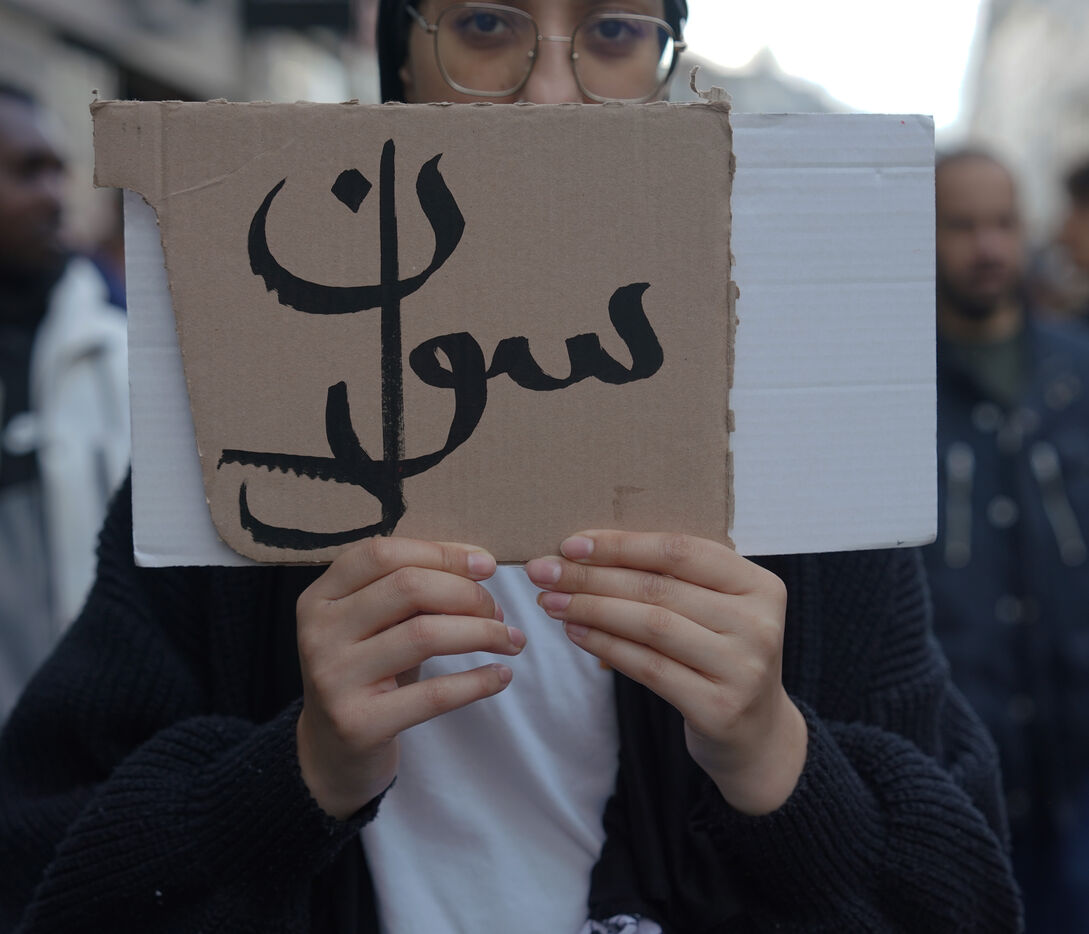 سودان